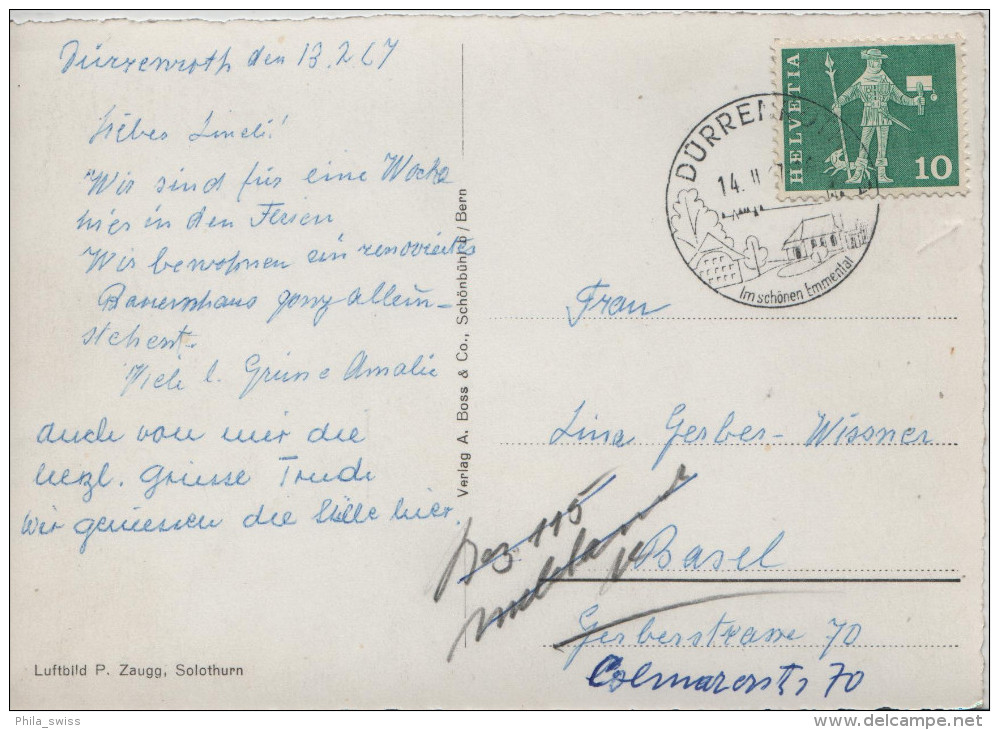 Dürrenroth den 13.2.67
Liebes Lineli!
Wir sind für eine Woche
hier in den Ferien
Wir bewohnen ein renoviertes
Bauernhaus ganz allein-
stehent.
Viele l. Grüsse Amalie
auch von mir die
herzl. Grüsse Trudi
Wir geniessen die Stille hier.
Luftbild P. Zaugg, Solothurn
Verlag A. Boss & Co., Schönbühl-B/Bern
HELVETIA
10
DÜRRENROTH
14. II
Im schönen Emmental
Frau
Lina Gerber-Wissner
Basel
Gerberstrasse 70
Colmarerstr 70
115
Phila_swiss
www.delcampe.net